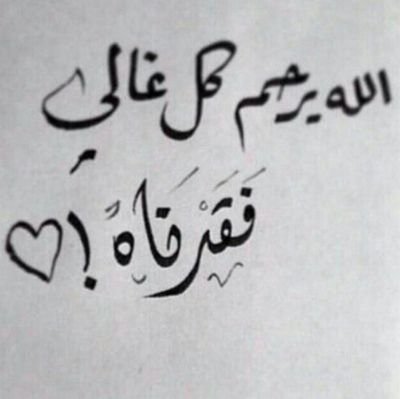 الله يرحم كل غالي
فَقَدْنَاهُ! ♡